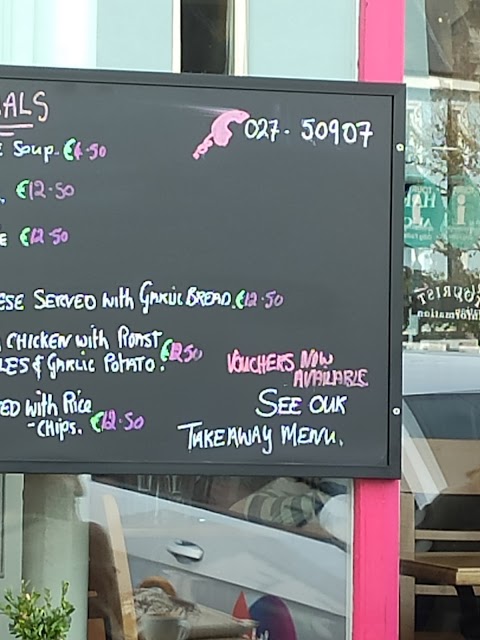 ALS
027-50907
Soup. €4.50
€12.50
€12.50
ESE SERVED with GARLIC BREAD. €12.50
CHICKEN with ROAST
LES & GARLIC POTATO. €12.50
VOUCHERS NOW
AVAILABLE
ED with Rice
-CHIPS. €12.50
SEE OUR
TAKEAWAY MENU.
TOURIST
information